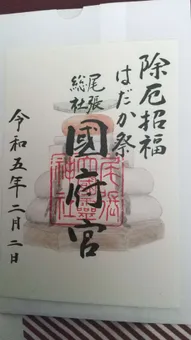 除厄招福
はだか祭
尾張
総社
國府宮
令和五年二月二日